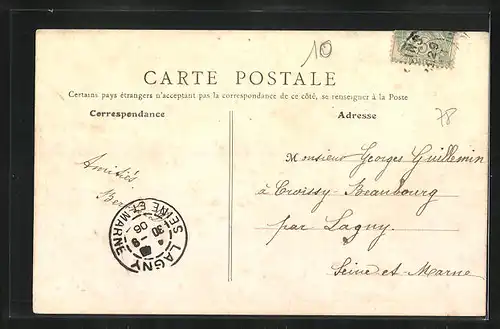 10
CARTE POSTALE
Certains pays étrangers n'acceptant pas la correspondance de ce côté, se renseigner à la Poste
Correspondance
Adresse
78
Amitiés
Monsieur Georges Guillemin
à Croissy-Beaubourg
par Lagny.
Seine-et-Marne
LAGNY
SEINE ET MARNE
30 - 9
06
29